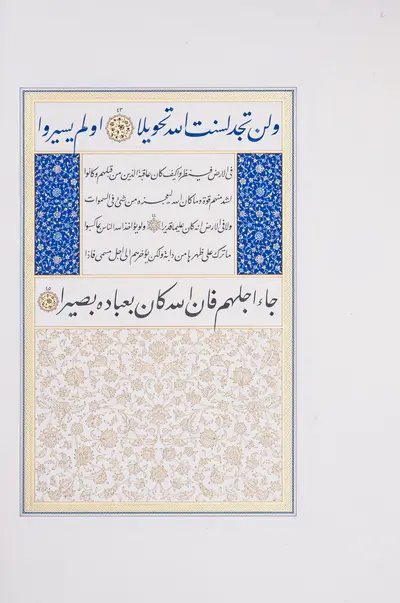 ولن تجد لسنت الله تحویلا ۴۳ اولم یسیروا
فی الارض فینظروا کیف کان عاقبة الذین من قبلهم و کانوا
اشد منهم قوة و ما کان الله لیعجزه من شیء فی السموات
ولا فی الارض انه کان علیما قدیرا ولو یؤاخذ الله الناس بما کسبوا
ما ترک علی ظهرها من دابة ولکن یؤخرهم الی اجل مسمی فاذا
جاء اجلهم فان الله کان بعباده بصیرا